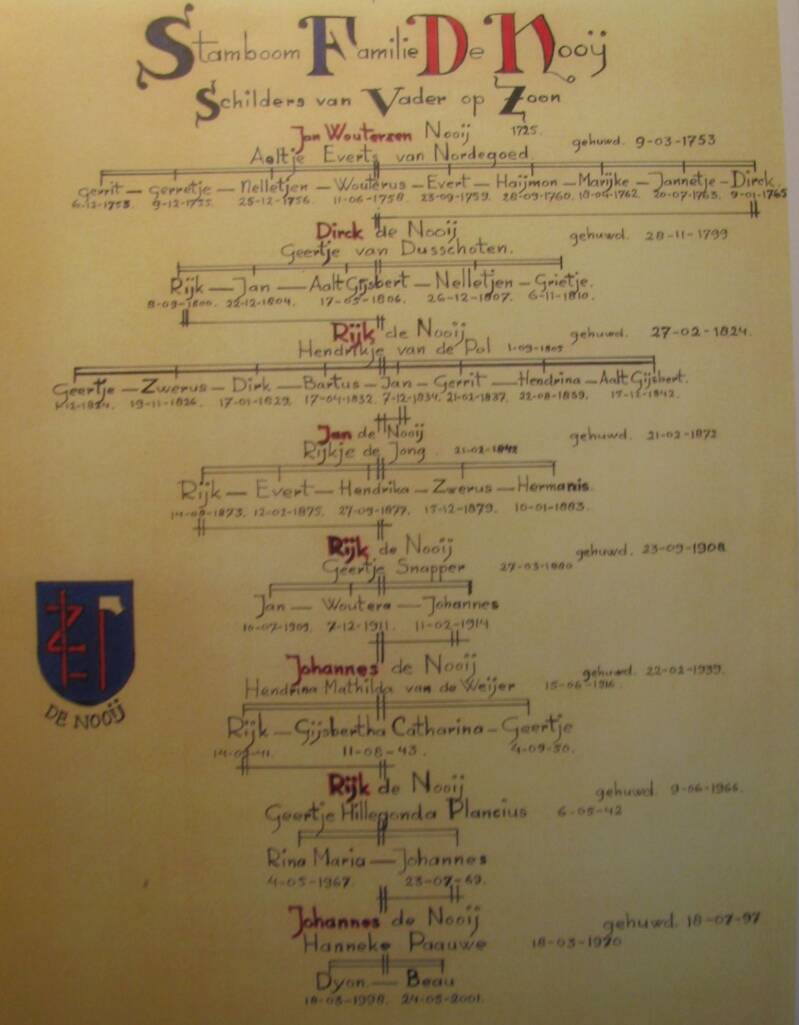 Stamboom Familie De Nooij
Schilders van Vader op Zoon
Jan Wouterzen Nooij 1725. gehuwd. 9-03-1753
Aaltje Everts van Nordegoed
Gerrit — Gerretje — Nelletjen — Wouterus — Evert — Haijmon — Marijke — Jannetje — Dirck.
6-12-1753. 9-12-1755. 25-12-1756. 11-06-1758. 23-09-1759. 28-09-1760. 18-04-1762. 20-07-1763. 9-01-1765
Dirck de Nooij gehuwd. 28-11-1799
Geertje van Dusschoten.
Rijk — Jan — Aalt Gijsbert — Nelletjen — Grietje.
8-09-1800. 22-12-1804. 17-03-1806. 26-12-1807. 6-11-1810.
Rijk de Nooij gehuwd. 27-02-1824.
Hendrikje van de Pol 1-09-1805
Geertje — Zwerus — Dirk — Bartus — Jan — Gerrit — Hendrina — Aalt Gijsbert.
1-12-1824. 19-11-1826. 17-01-1829. 17-04-1832. 7-12-1834. 21-02-1837. 22-08-1839. 15-12-1842.
Jan de Nooij gehuwd. 21-02-1872
Rijkje de Jong. 21-02-1842
Rijk — Evert — Hendrika — Zwerus — Hermanis.
14-08-1873. 12-02-1875. 27-09-1877. 15-12-1879. 10-01-1883.
Rijk de Nooij gehuwd. 23-09-1908
Geertje Snapper 27-03-1880
Jan — Woutera — Johannes
10-07-1909. 7-12-1911. 11-02-1914
Johannes de Nooij gehuwd. 22-02-1939.
Hendrina Mathilda van de Weijer 15-06-1916.
Rijk — Gijsbertha Catharina — Geertje
11-08-43. 4-09-50.
DE NOOIJ
Rijk de Nooij gehuwd. 9-06-1966.
Geertje Hillegonda Plancius 6-05-42
Rina Maria — Johannes
4-05-1967. 23-07-69.
Johannes de Nooij gehuwd. 18-07-97
Hanneke Paauwe 18-03-1970
Dyon — Beau
18-03-1998. 24-05-2001.